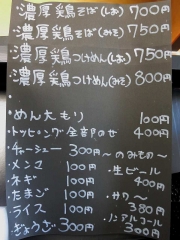 ・濃厚鶏そば(しお) 700円
・濃厚鶏そば(みそ) 750円
・濃厚鶏つけめん(しお) 750円
・濃厚鶏つけめん(みそ) 800円
・めん大もり 100円
・トッピング全部のせ 400円
・チャーシュー 300円
・メンマ 100円
・ネギ 100円
・たまご 100円
・ライス 100円
・ぎょうざ 300円
～のみもの～
・生ビール 400円
・サワー 380円
・ノンアルコール 300円